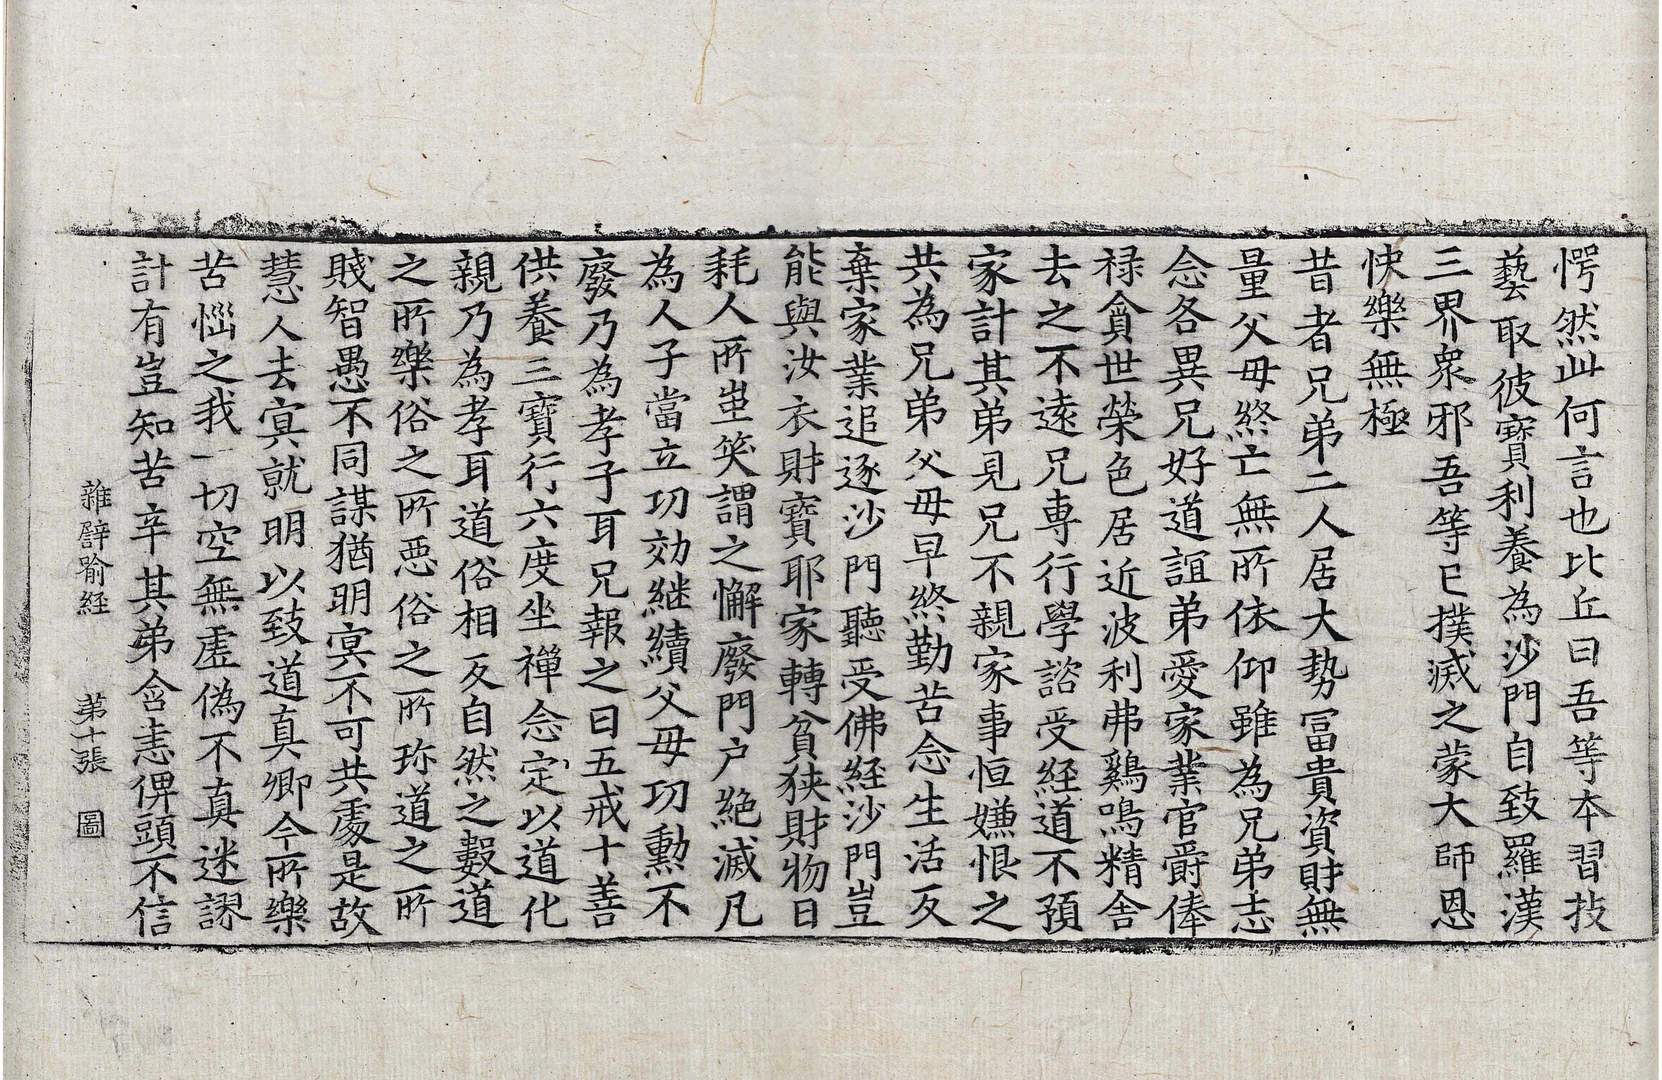 愕然此何言也比丘曰吾等本習技
藝取彼寶利養為沙門自致羅漢
三界衆邪吾等已撲滅之蒙大師恩
快樂無極
昔者兄弟二人居大勢冨貴資財無
量父母終亡無所依仰雖為兄弟志
念各異兄好道誼弟愛家業官爵俸
禄貪世榮色居近波利弗鷄鳴精舍
去之不遠兄專行學諮受経道不預
家計其弟見兄不親家事恒嫌恨之
共為兄弟父母早終勤苦念生活反
棄家業追逐沙門聽受佛経沙門豈
能與汝衣財寶耶家轉貧狹財物日
耗人所蚩笑謂之懈廢門户絶滅凡
為人子當立功効継續父母功勳不
廢乃為孝子耳兄報之曰五戒十善
供養三寶行六度坐禪念定以道化
親乃為孝耳道俗相反自然之數道
之所樂俗之所惡俗之所珎道之所
賤智愚不同謀猶明㝠不可共處是故
慧人去㝠就明以致道真卿今所樂
苦惱之我一切空無虛偽不真迷謬
計有豈知苦辛其弟含恚俾頭不信
雜譬喻経　第十張　圖